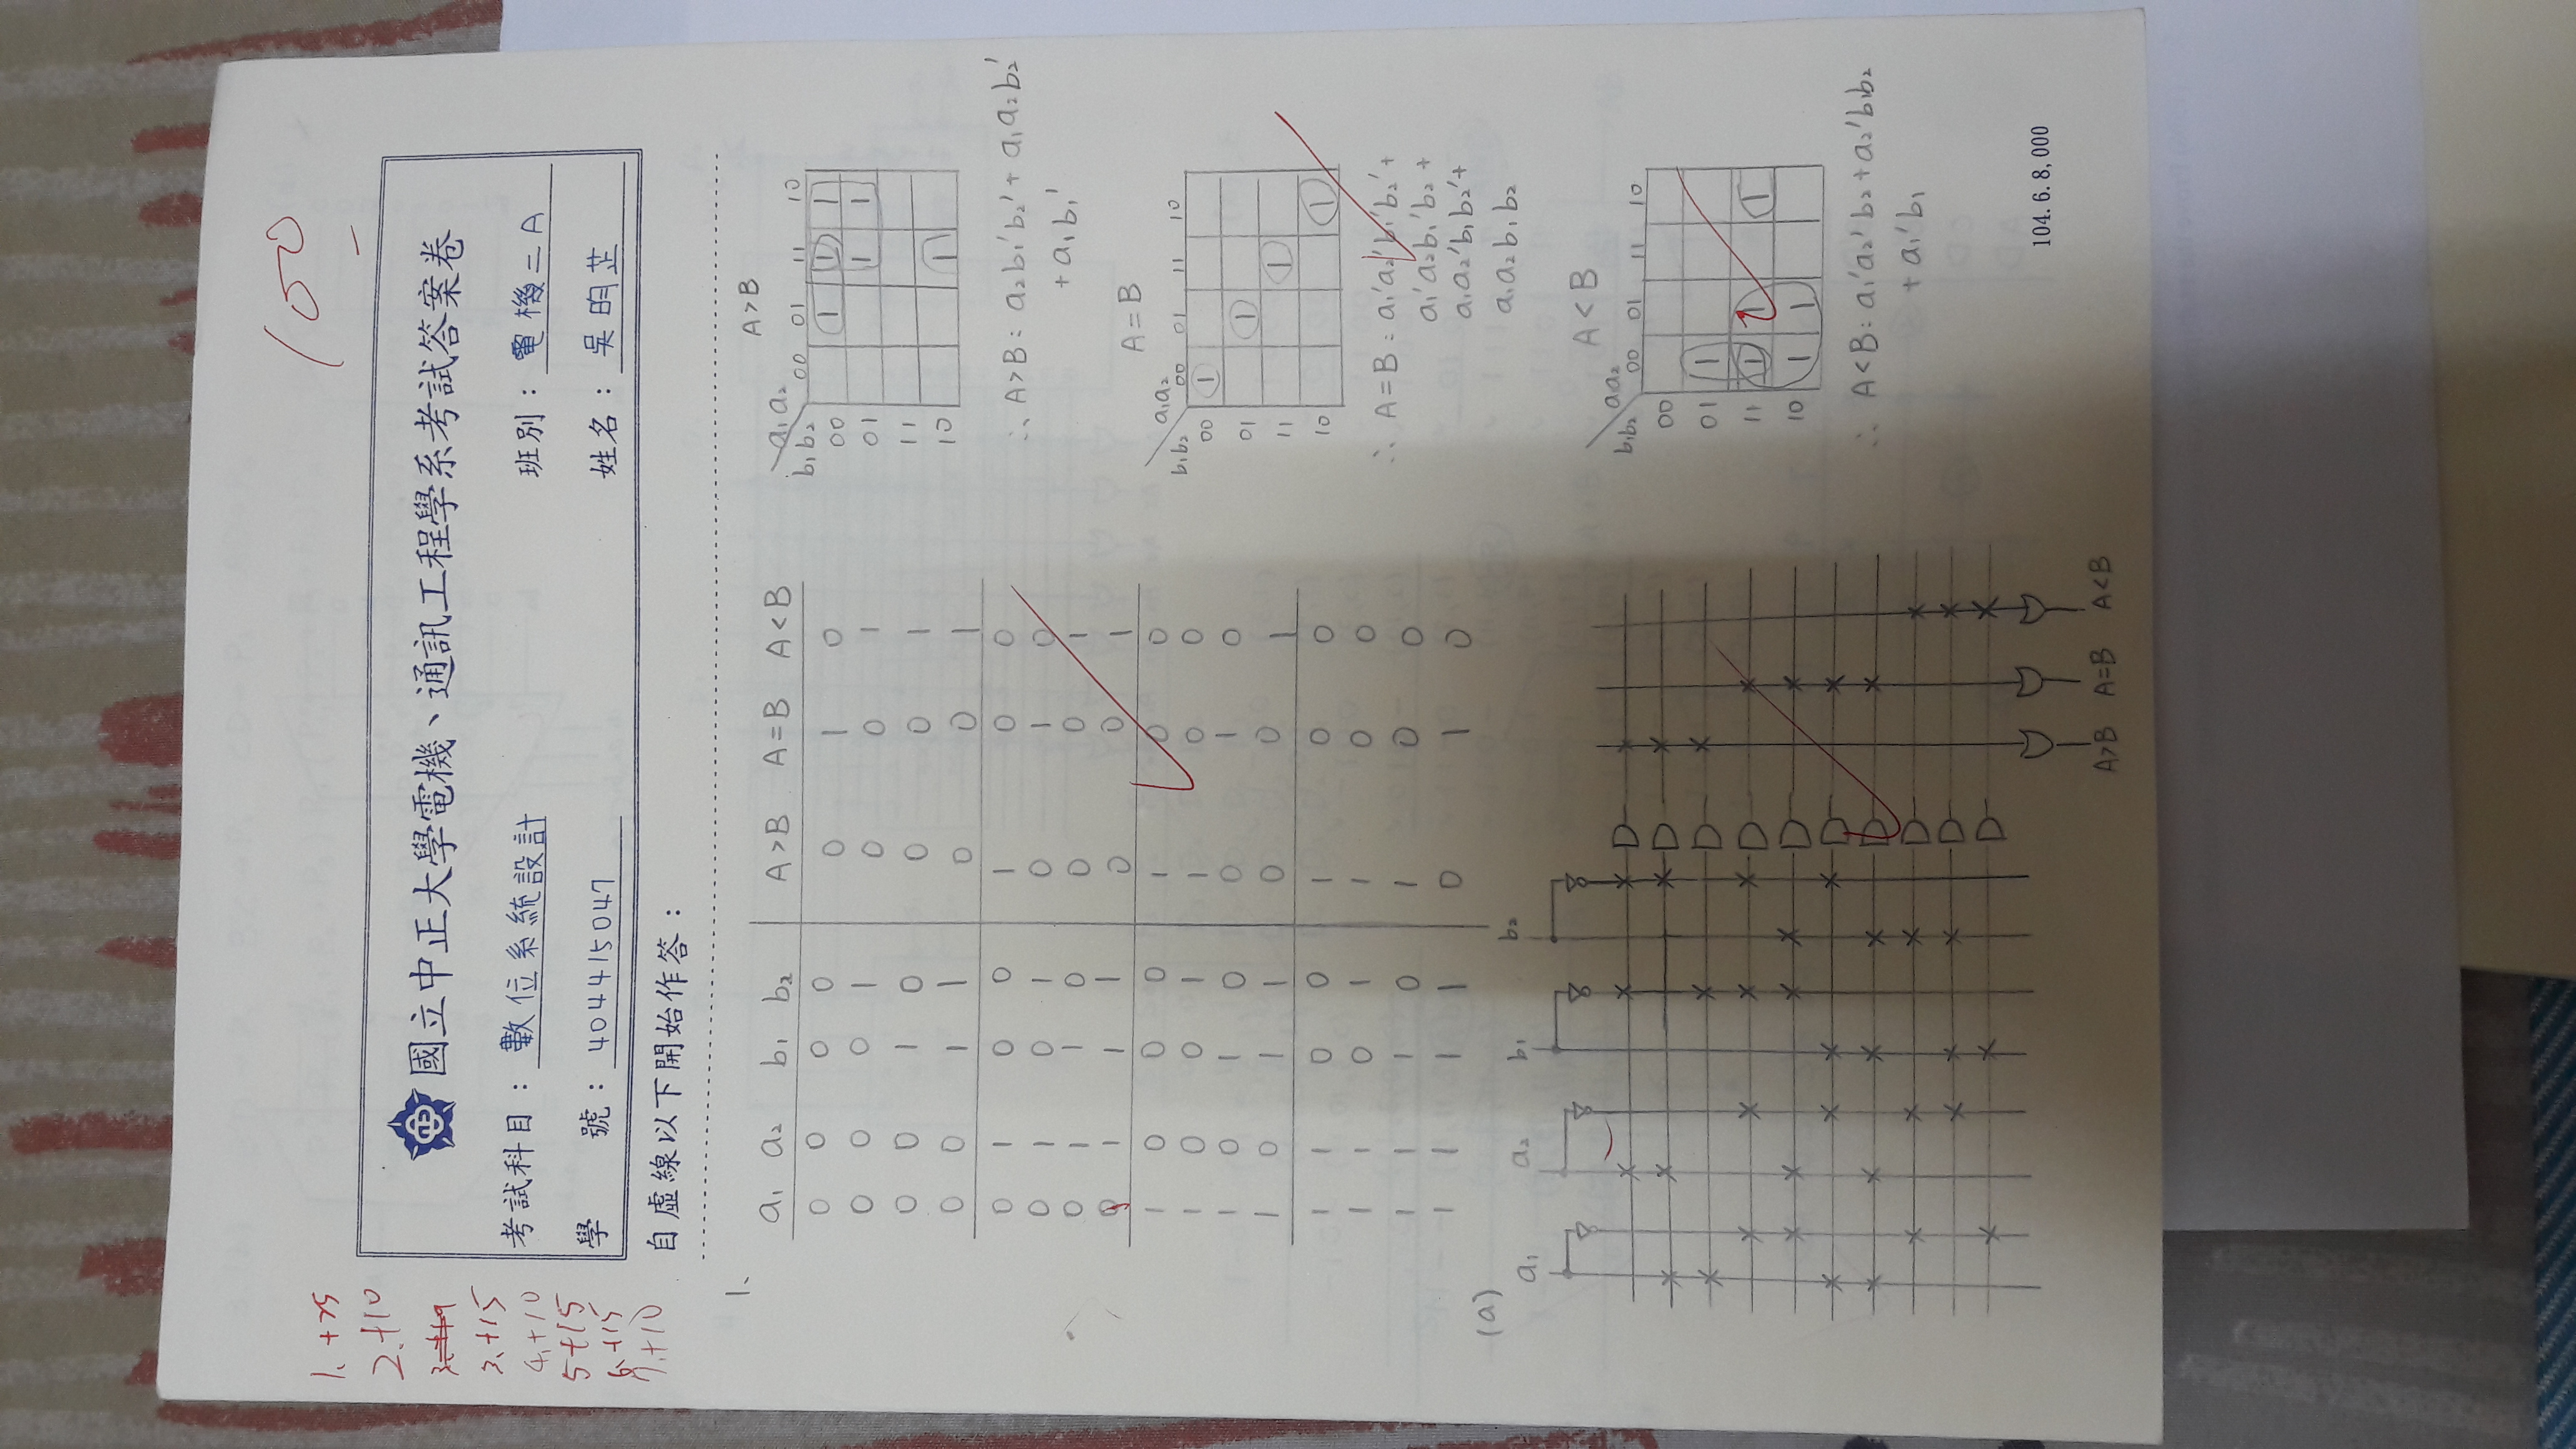 100
1. +25
2. +10
3. +15
4. +10
5 +15
6. +15
7. +10
國立中正大學電機、通訊工程學系考試答案卷
考試科目：數位系統設計 班別：電機二A
學 號：404415047 姓名：吳昀芷
自虛線以下開始作答：
1.
a₁ a₂ b₁ b₂ A>B A=B A<B
0 0 0 0 0 1 0
0 0 0 1 0 0 1
0 0 1 0 0 0 1
0 0 1 1 0 0 1
0 1 0 0 1 0 0
0 1 0 1 0 1 0
0 1 1 0 0 0 1
0 1 1 1 0 0 1
1 0 0 0 1 0 0
1 0 0 1 1 0 0
1 0 1 0 0 1 0
1 0 1 1 0 0 1
1 1 0 0 1 0 0
1 1 0 1 1 0 0
1 1 1 0 1 0 0
1 1 1 1 0 1 0
A>B
a₁a₂
b₁b₂ 00 01 11 10
00 1 1 1
01 1 1
11
10 1
∴ A>B: a₂b₁'b₂' + a₁a₂b₂'
+ a₁b₁'
A=B
a₁a₂
b₁b₂ 00 01 11 10
00 1
01 1
11 1
10 1
∴ A=B: a₁'a₂'b₁'b₂' +
a₁'a₂b₁'b₂ +
a₁a₂'b₁b₂' +
a₁a₂b₁b₂
A<B
a₁a₂
b₁b₂ 00 01 11 10
00
01 1
11 1 1 1
10 1 1
∴ A<B: a₁'a₂'b₂ + a₂'b₁b₂
+ a₁'b₁
(a)
a₁ a₂ b₁ b₂
A>B A=B A<B
104.6.8,000